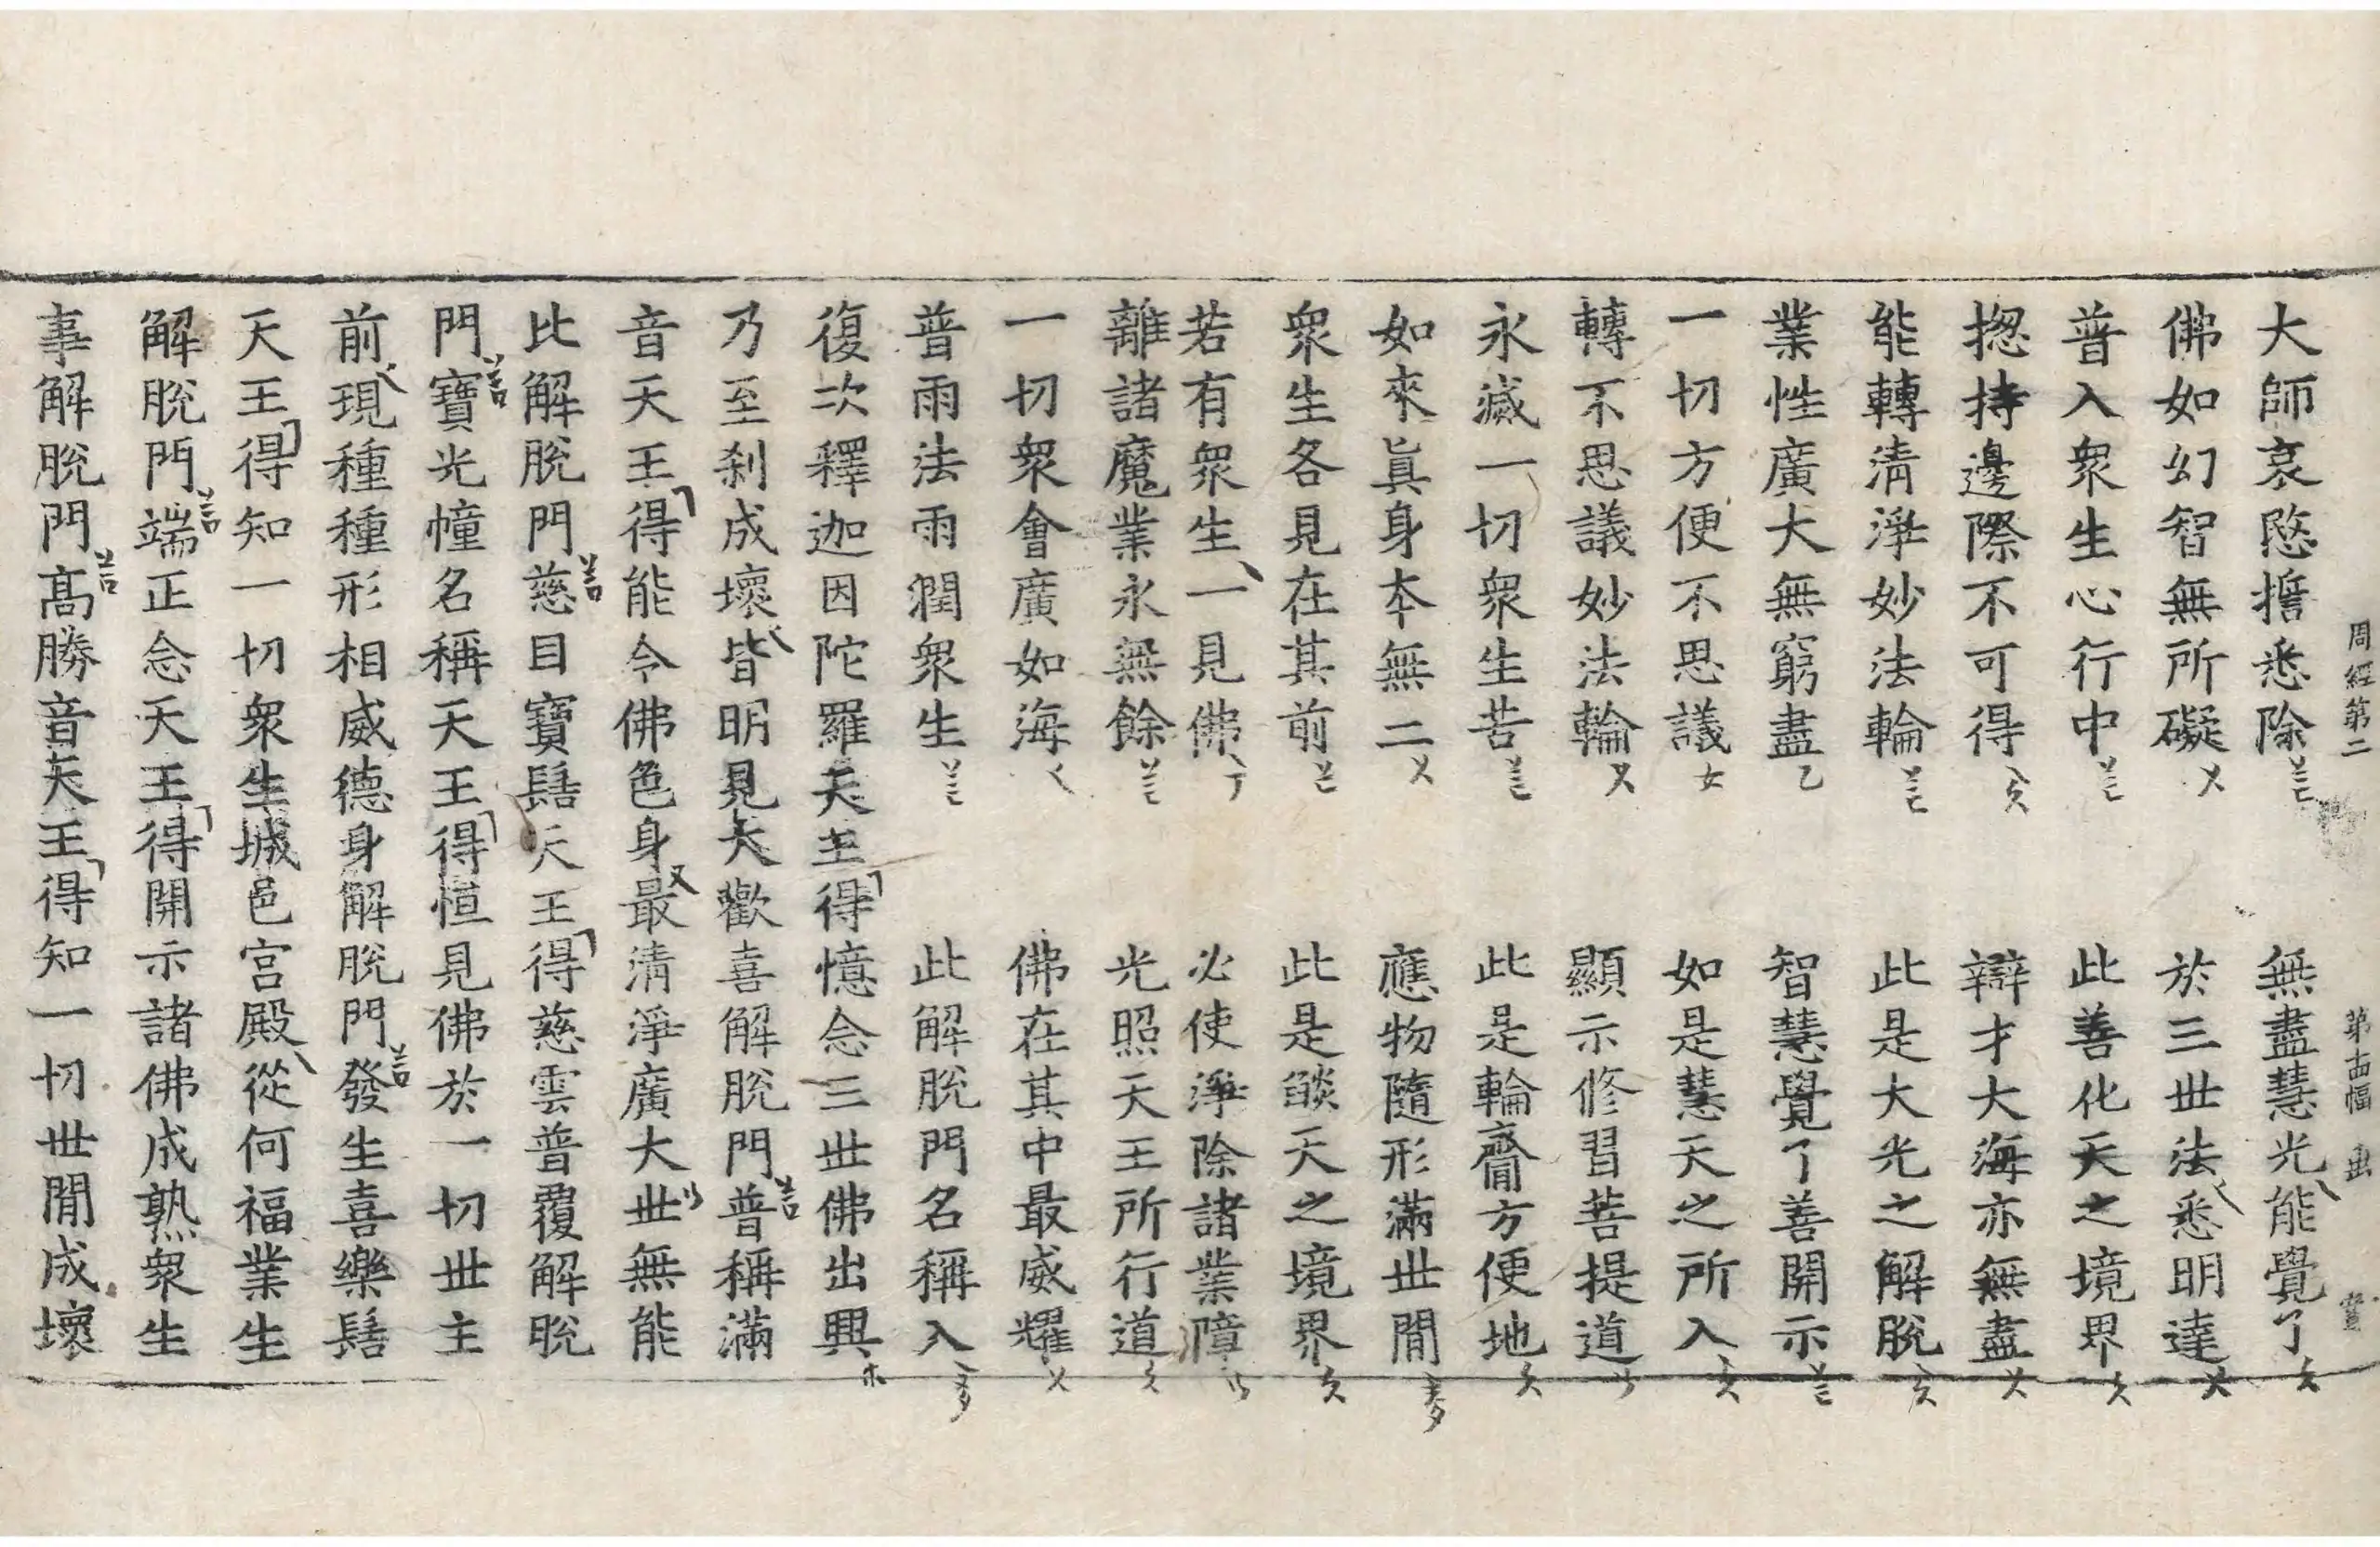 周經第二 第十四幅 出
大師哀愍擔悉除 無盡慧光能覺了
佛如幻智無所礙 於三世法悉明達
普入衆生心行中 此善化天之境界
揔持邊際不可得 辯才大海亦無盡
能轉清淨妙法輪 此是大光之解脫
業性廣大無窮盡 智慧覺了善開示
一切方便不思議 如是慧天之所入
轉不思議妙法輪 顯示修習菩提道
永滅一切衆生苦 此是輪齎方便地
如來眞身本無二 應物隨形滿世間
衆生各見在其前 此是𦦨天之境界
若有衆生一見佛 必使淨除諸業障
離諸魔業永無餘 光照天王所行道
一切衆會廣如海 佛在其中最威耀
普雨法雨潤衆生 此解脫門名稱入
復次釋迦因陀羅天主得憶念三世佛出興
乃至刹成壞皆明見大歡喜解脫門普稱滿
音天王得能令佛色身最清淨廣大世無能
比解脫門慈目寶髻天王得慈雲普覆解脫
門寶光幢名稱天王得恒見佛於一切世主
前現種種形相威德身解脫門發生喜樂髻
天王得知一切衆生城邑宮殿從何福業生
解脫門端正念天王得開示諸佛成熟衆生
事解脫門髙勝音天王得知一切世間成壞